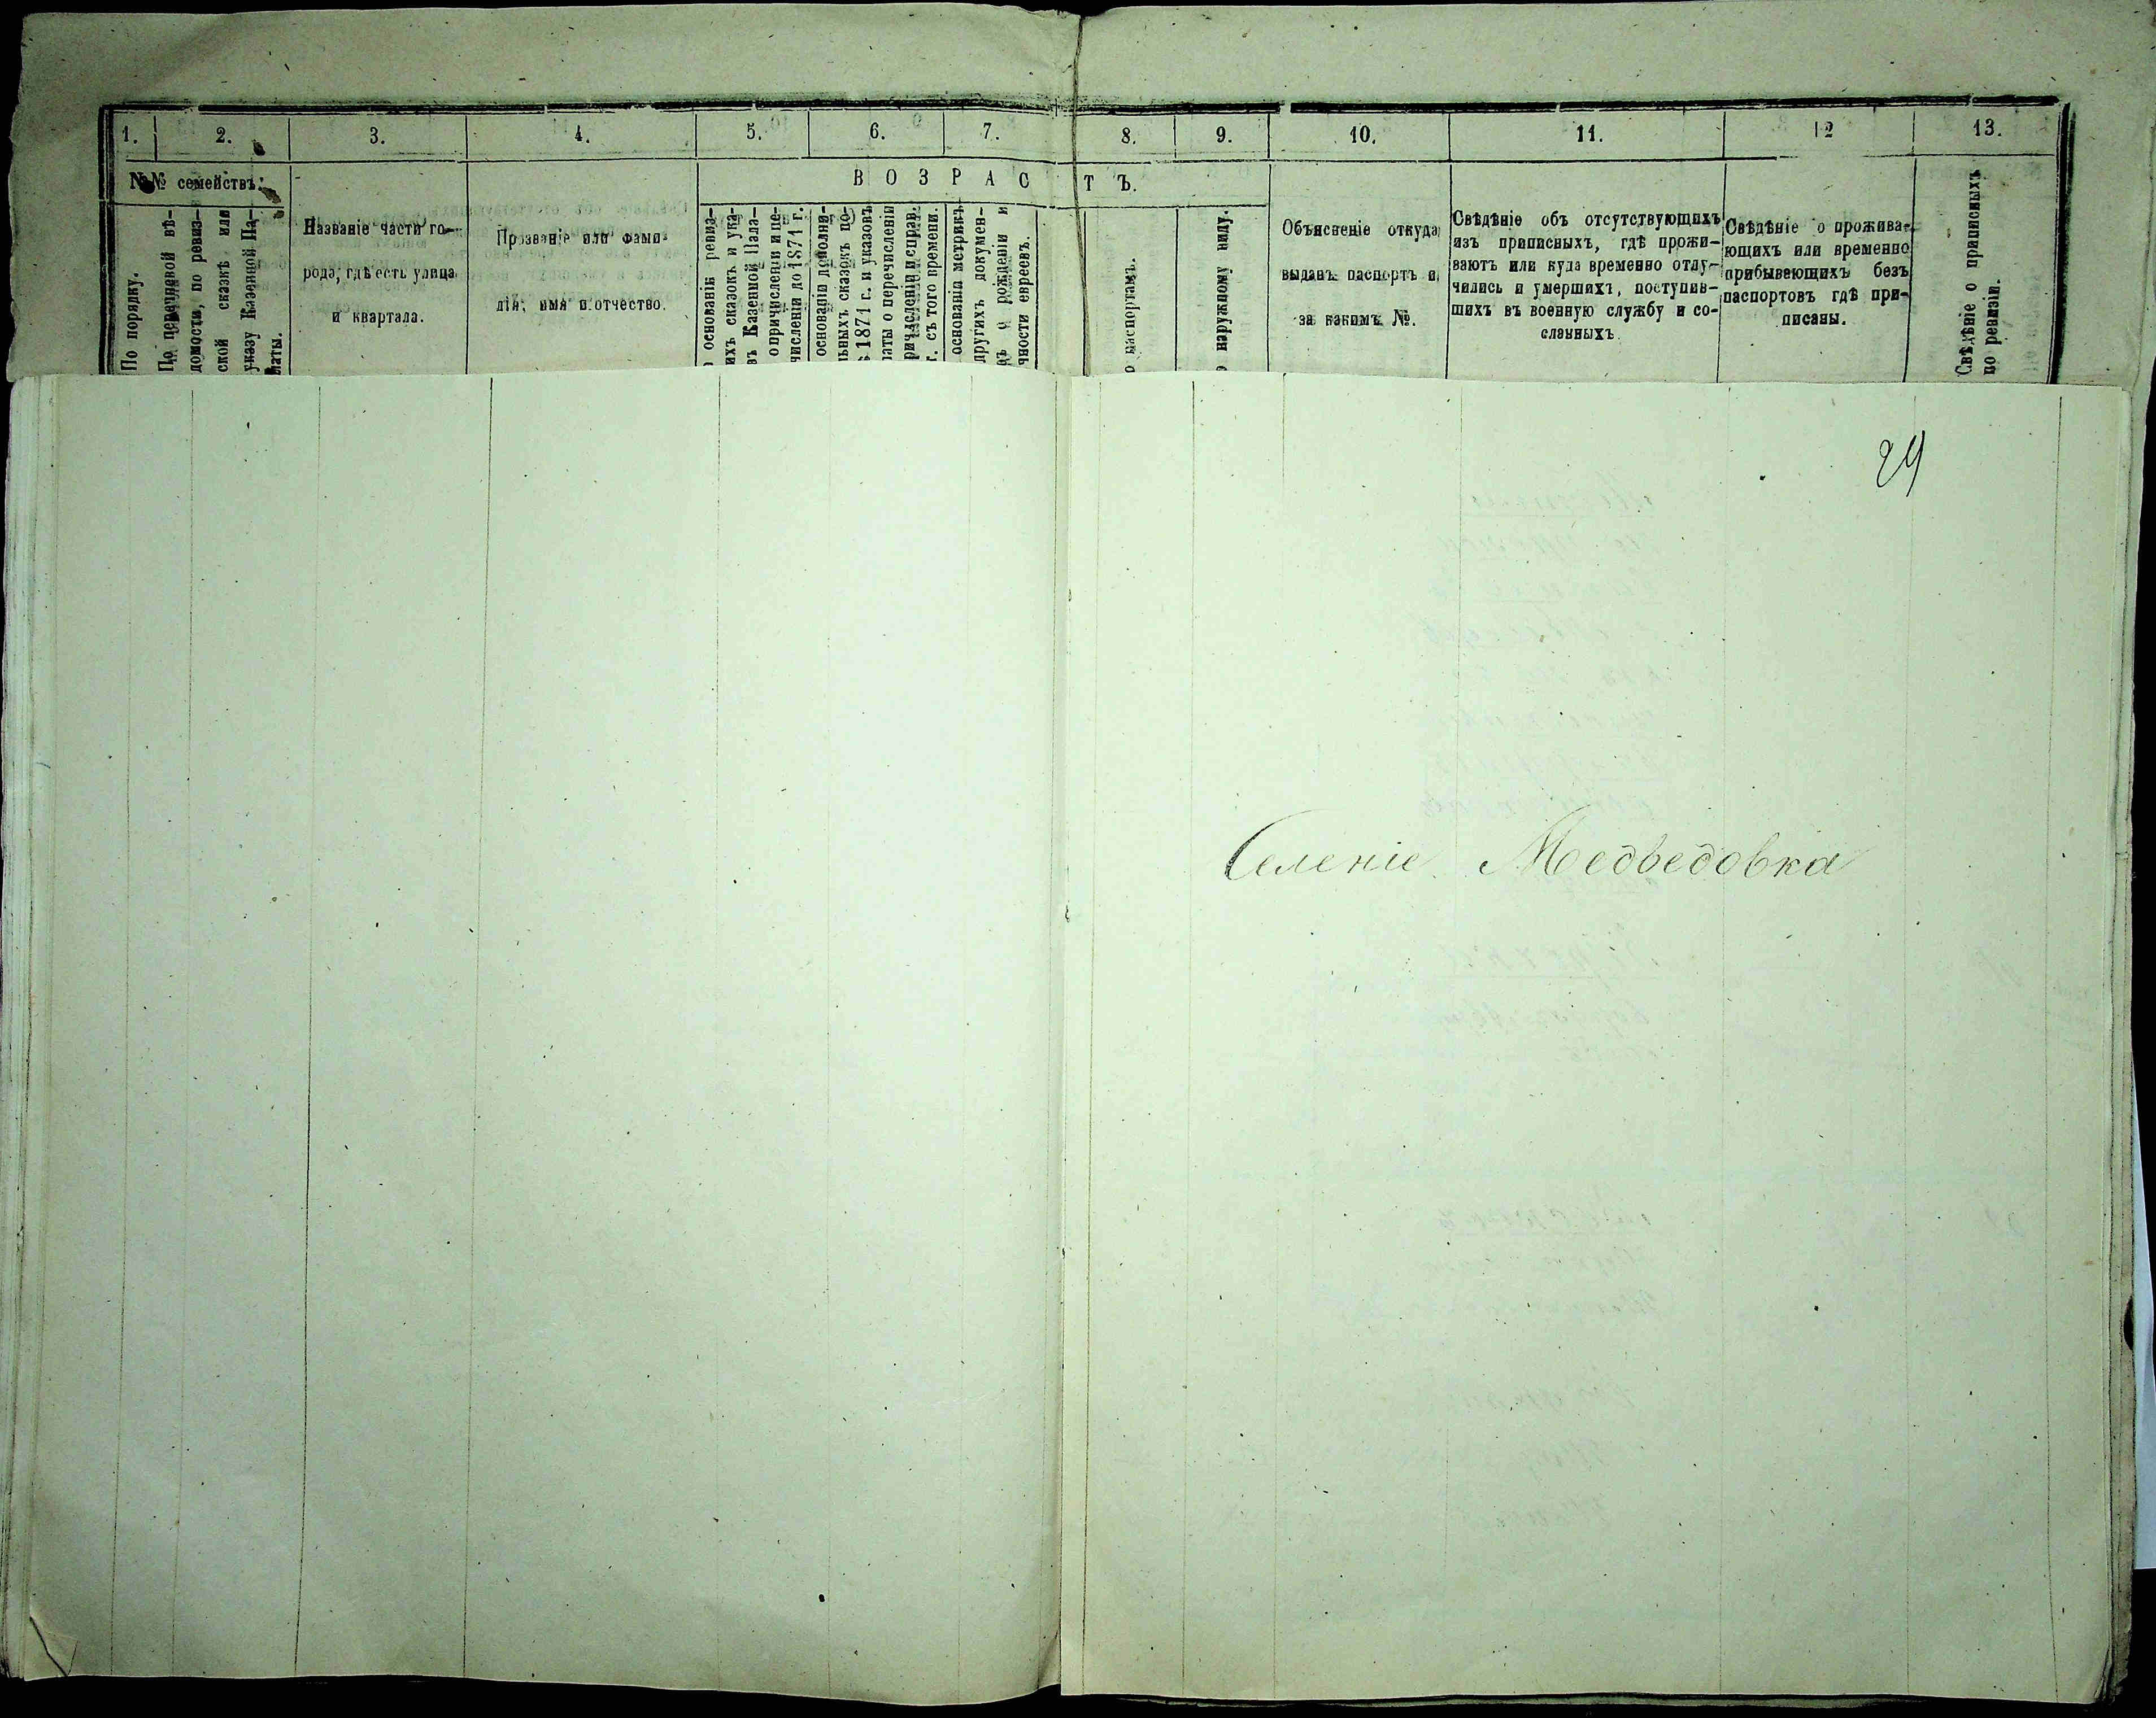 1. 2. 3. 4. 5. 6. 7. 8. 9. 10. 11. 12 13.
№№ семействъ.
По порядку.
По перечневой вѣ-
домости, по ревиз-
ской сказкѣ или
указу Казенной Па-
латы.
Названіе части го-
рода, гдѣ есть улица
и квартала.
Прозваніе или фами-
лія, имя и отчество.
ВОЗРАСТЪ.
основаніи ревиз-
ихъ сказокъ и ука-
въ Казенной Пала-
о причисленіи и пе-
численіи до 1871 г.
основаніи дополни-
льныхъ сказокъ по-
1871 г. и указовъ
латы о перечисленіи
причисленіи и справ.
г. съ того времени.
основаніи метрикъ
другихъ докумен-
ъ о рожденіи и
чности евреевъ.
о паспортамъ.
наружному виду.
Объясненіе откуда
выданъ паспортъ и
за какимъ №.
Свѣдѣніе объ отсутствующихъ
изъ приписныхъ, гдѣ прожи-
ваютъ или куда временно отлу-
чились и умершихъ, поступив-
шихъ въ военную службу и со-
сланныхъ
Свѣдѣніе о прожива-
ющихъ или временно
прибывеющихъ безъ
паспортовъ гдѣ при-
писаны.
Свѣдѣніе о приписныхъ
по ревизіи.
29
Селеніе Медведовка